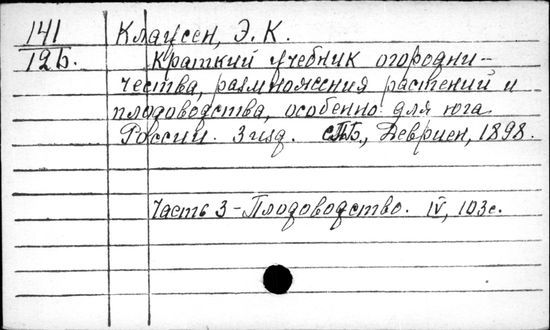 141
12Б.
Клаусен, Э. К.
Краткий учебник огородни-
чества, размножения растений и
плодоводства, особенно для юга
России. 3 изд. СПБ., Девриен, 1898.
Часть 3 - Плодоводство. IV, 103 с.